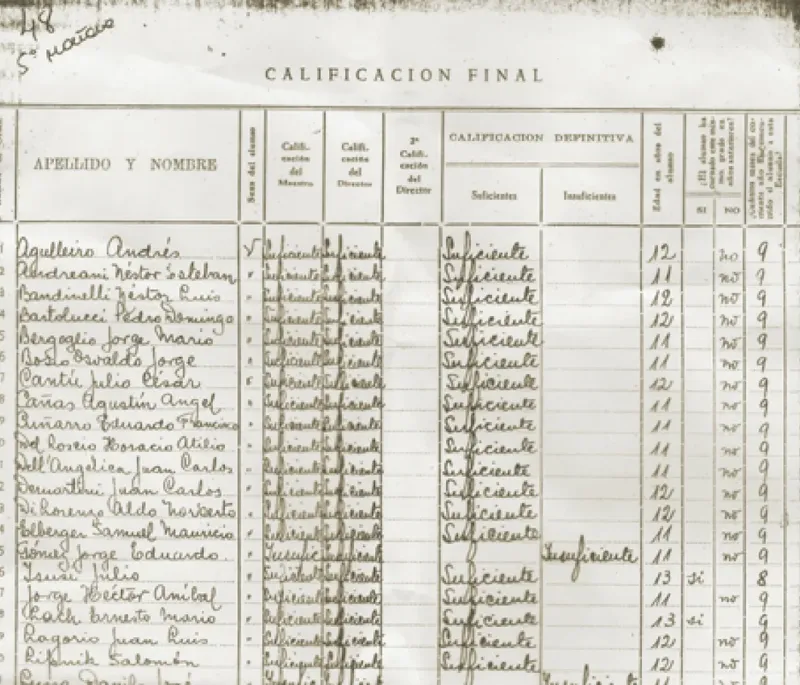 48
5º mañana
CALIFICACION FINAL
APELLIDO Y NOMBRE
Sexo del alumno
Califi-
cación
del
Maestro
Califi-
cación
del
Director
2ª
Califi-
cación
del
Director
CALIFICACION DEFINITIVA
Suficientes
Insuficientes
Edad en años del
alumno
¿El alumno ha
cursado este mis-
mo grado en
años anteriores?
SI NO
1 Agulleiro Andrés V Suficiente Suficiente Suficiente 12 no 9
2 Andreani Néstor Esteban " Suficiente Suficiente Suficiente 11 no 9
3 Bandinelli Néstor Luis " Suficiente Suficiente Suficiente 12 no 9
4 Bartolucci Pedro Domingo " Suficiente Suficiente Suficiente 12 no 9
5 Bergoglio Jorge Mario " Suficiente Suficiente Suficiente 11 no 9
6 Bosso Osvaldo Jorge " Suficiente Suficiente Suficiente 11 no 9
7 Cantú Julio César " Suficiente Suficiente Suficiente 12 no 9
8 Cañas Agustín Angel " Suficiente Suficiente Suficiente 11 no 9
9 Eduardo Francisco " Suficiente Suficiente Suficiente 11 no 9
0 Del Horacio Atilio " Suficiente Suficiente Suficiente 11 no 9
1 Dell'Angelica Juan Carlos " Suficiente Suficiente Suficiente 11 no 9
2 Demartini Juan Carlos " Suficiente Suficiente Suficiente 12 no 9
3 Di Lorenzo Aldo Norberto " Suficiente Suficiente Suficiente 12 no 9
4 Elberger Samuel Mauricio " Suficiente Suficiente Suficiente 11 no 9
5 Gómez Jorge Eduardo. " Insuficiente 11 no 9
6 Julio " Suficiente Suficiente Suficiente 13 si 8
7 Jorge Héctor Aníbal " Suficiente Suficiente Suficiente 11 no 9
8 Lach Ernesto Mario " Suficiente Suficiente Suficiente 13 si 9
9 Lagorio Juan Luis " Suficiente Suficiente Suficiente 12 no 9
Lipnik Salomón " Suficiente Suficiente Suficiente 12 no 9